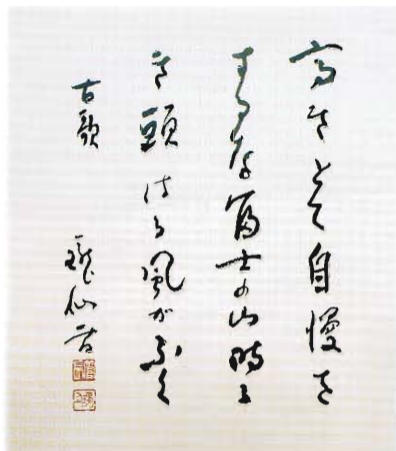 高きとて自慢を
するな富士の山時に
頭はる風がふく
古歌
瓏仙書